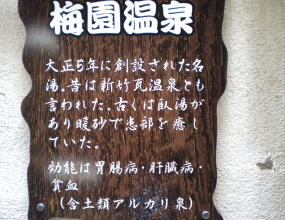 梅園温泉
大正5年に創設された名
湯。昔は新竹瓦温泉とも
言われた。古くは臥湯が
あり暖砂で患部を癒し
ていた。
効能は胃腸病・肝臓病・
貧血
(含土類アルカリ泉)